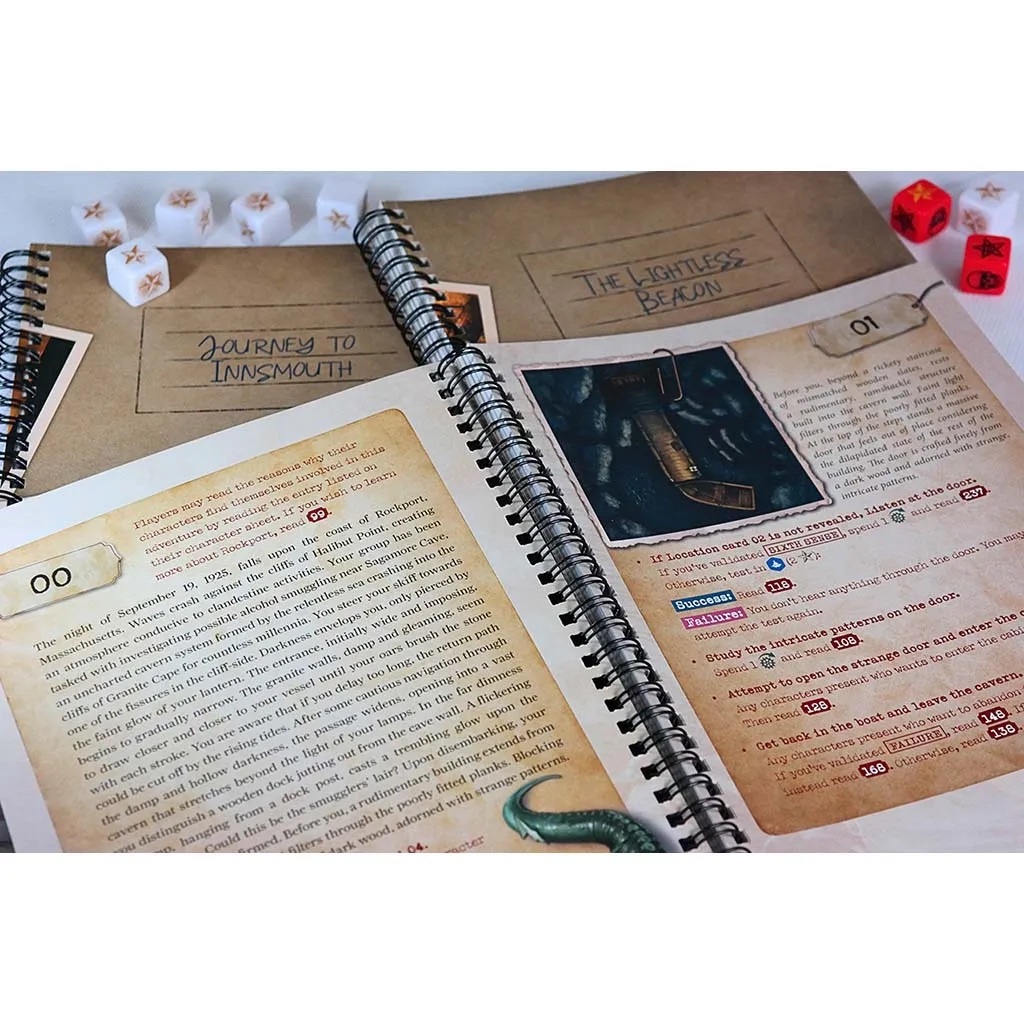 JOURNEY TO
INNSMOUTH
THE LIGHTLESS
BEACON
Players may read the reasons why their
characters find themselves involved in this
adventure by reading the entry listed on
their character sheet. If you wish to learn
more about Rockport, read 99.
00
night of September 19, 1925, falls upon the coast of Rockport,
Massachusetts. Waves crash against the cliffs of Halibut Point, creating
atmosphere conducive to clandestine activities. Your group has been
tasked with investigating possible alcohol smuggling near Sagamore Cave,
an uncharted cavern system formed by the relentless sea crashing into the
cliffs of Granite Cape for countless millennia. You steer your skiff towards
one of the fissures in the cliff-side. Darkness envelops you, only pierced by
the faint glow of your lantern. The entrance, initially wide and imposing,
begins to gradually narrow. The granite walls, damp and gleaming, seem
to draw closer and closer to your vessel until your oars graze the stone
with each stroke. You are aware that if you delay too long, the return path
could be cut off by the rising tides. After some cautious navigation through
the damp and hollow darkness, the passage widens, opening into a vast
cavern that stretches beyond the light of your lamps. In the far dimness
you distinguish a wooden dock jutting out from the cave wall. A flickering
hanging from a dock post, casts a trembling glow upon the
Could this be the smugglers' lair? Upon disembarking, your
firmed. Before you, a rudimentary building extends from
filters through the poorly fitted planks. Blocking
dark wood, adorned with strange patterns.
04.
01
Before you, beyond a rickety staircase
of mismatched wooden slates, rests
a rudimentary, ramshackle structure
built into the cavern wall. Faint light
filters through the poorly fitted planks.
At the top of the steps stands a massive
door that feels out of place considering
the dilapidated state of the rest of the
building. The door is crafted finely from
a dark wood and adorned with strange,
intricate patterns.
• If Location card 02 is not revealed, Listen at the door.
If you've validated SIXTH SENSE, spend 1 and read 237.
Otherwise, test in (2).
Success: Read 118.
Failure: You don't hear anything through the door. You may
attempt the test again.
• Study the intricate patterns on the door.
Spend 1 and read 108.
• Attempt to open the strange door and enter the
Any characters present who wants to enter the
Then read 128.
• Get back in the boat and leave the cavern.
Any characters present who want to abandon
If you've validated FAILURE, read 148.
instead read 168. Otherwise, read 138.